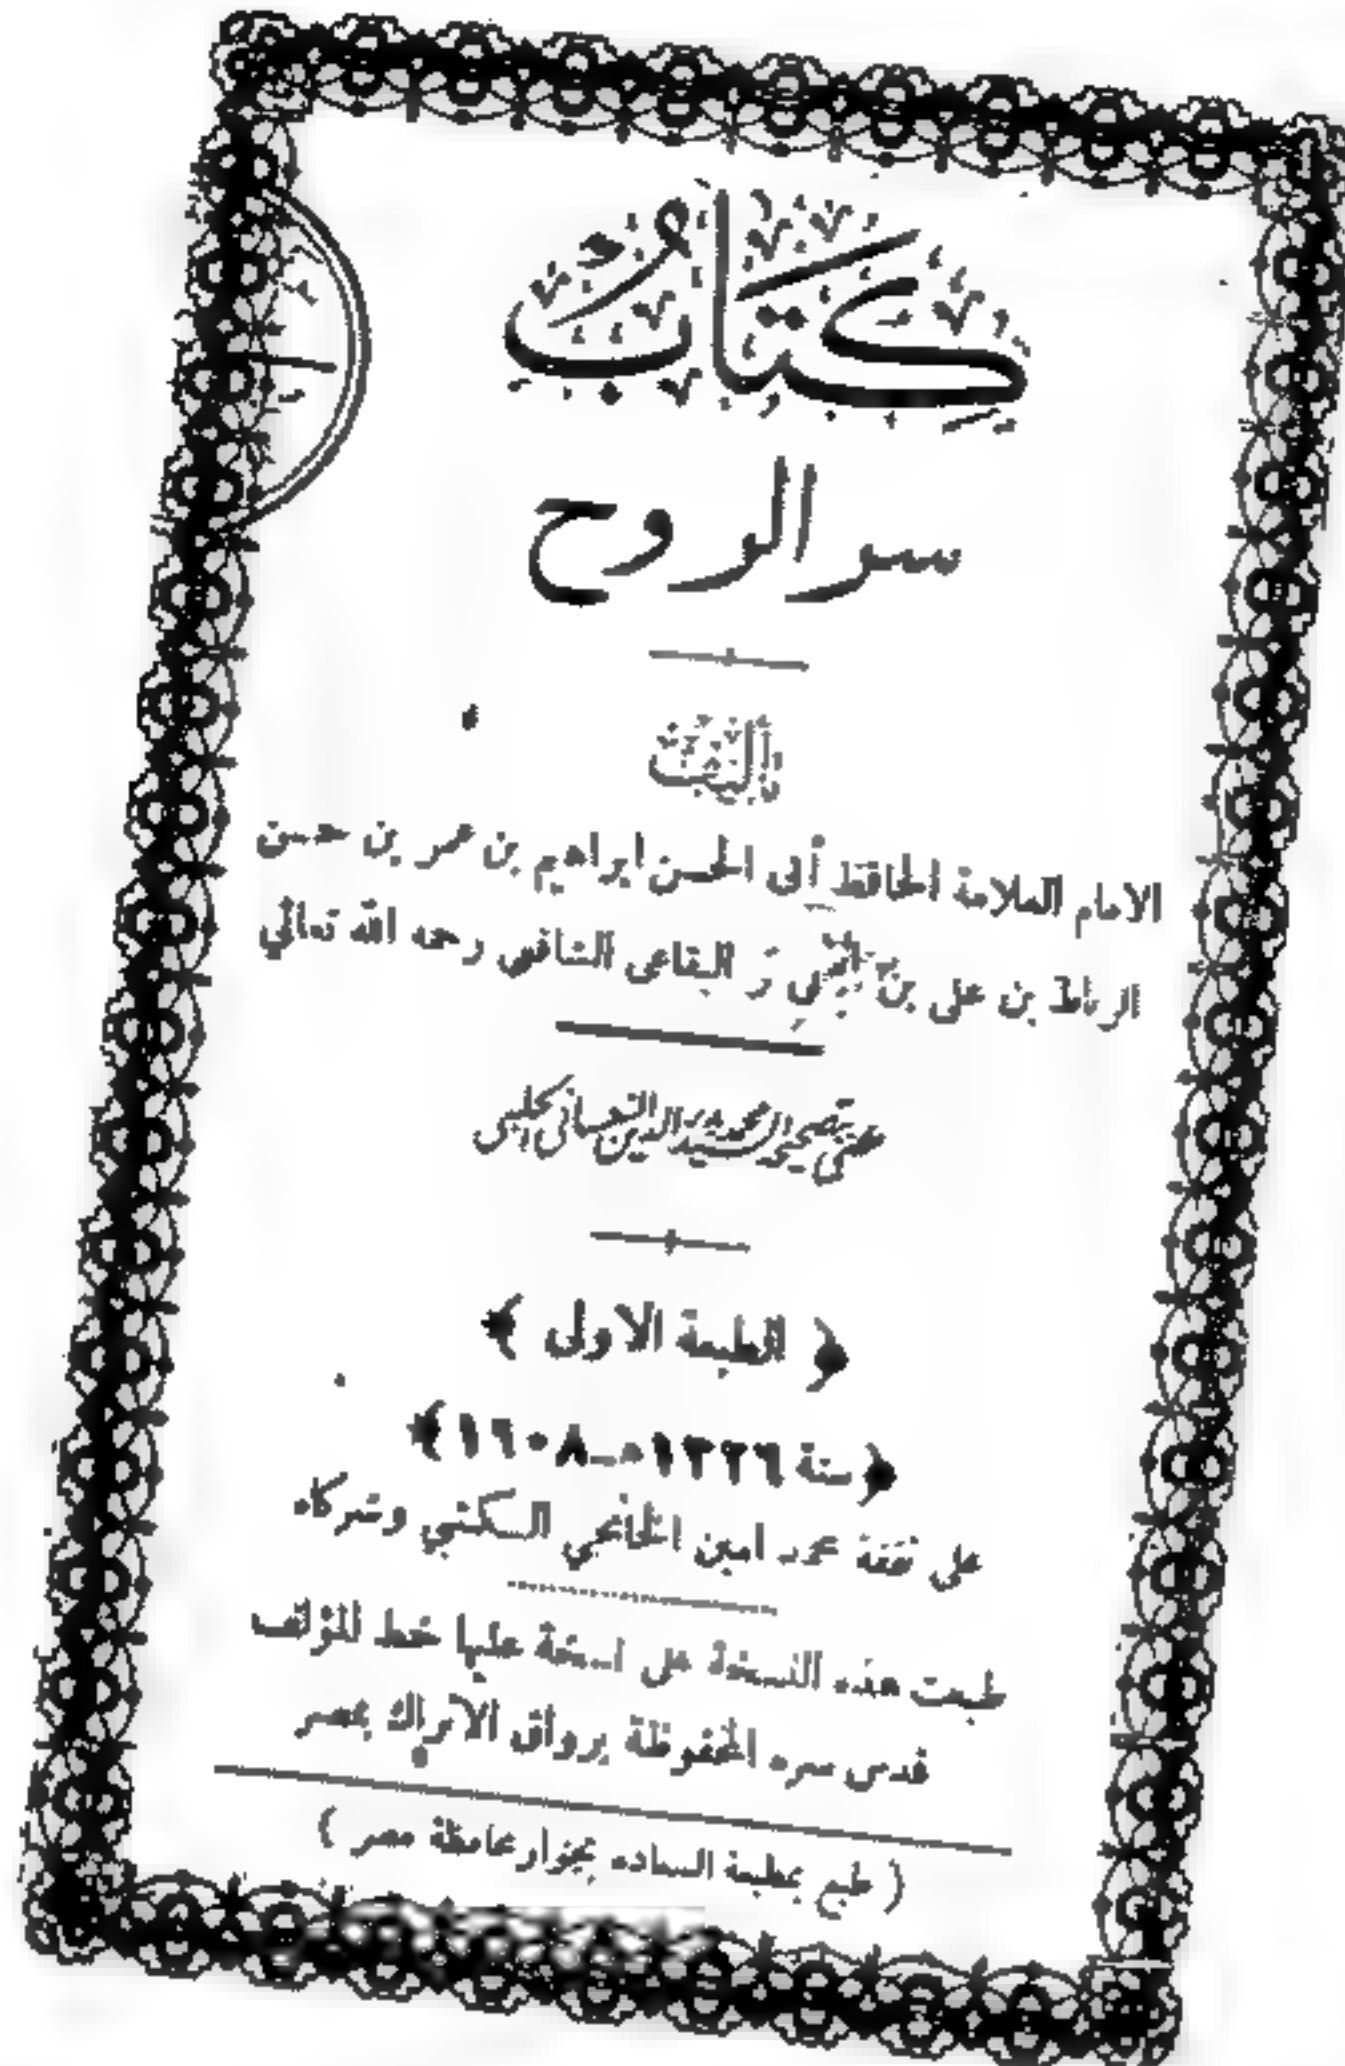 كِتَابُ
سر الروح
تأليف
الامام العلامة الحافظ أبى الحسن ابراهيم بن عمر بن حسن
الرباط بن على بن أبي بكر البقاعى الشافعى رحمه الله تعالى
عنى بتصحيحه السيد محمد بدر الدين النعسانى الحلبى
﴿ الطبعة الاولى ﴾
﴿ سنة ١٣٢٦ه‍ـ ١٩٠٨ ﴾
على نفقة محمد امين الخانجي الكتبي وشركاه
طبعت هذه النسخة على نسخة عليها خط المؤلف
قدس سره المحفوظة برواق الاتراك بمصر
( طبع بمطبعة السعاده بجوار محافظة مصر )